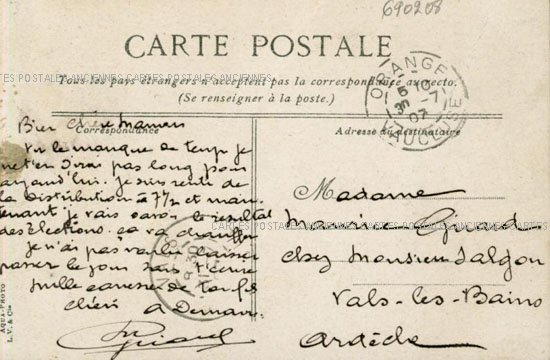 690208
CARTE POSTALE
Tous les pays étrangers n'acceptent pas la correspondance au recto.
(Se renseigner à la poste.)
CARTES POSTALES ANCIENNES CARTES POSTALES ANCIENNES
ORANGE
VAUCLUSE
07
Correspondance
Adresse du destinataire
Bien chère Maman
Vu le manque de temps je
ne t'en dirai pas long pour
aujourd'hui. je suis rentré de
la distribution à 7h½ et main
tenant je vais savoir le resultat
des élections. ça va chauffer
je n'ai pas voulu laisser
passer le jour sans t'écrire
mille caresses de ton fils
chéri à Demain.
Madame
chez Monsieur Salgon
Vals-les-Bains
Ardèche
AQUA-PHOTO
L. V. & Cie